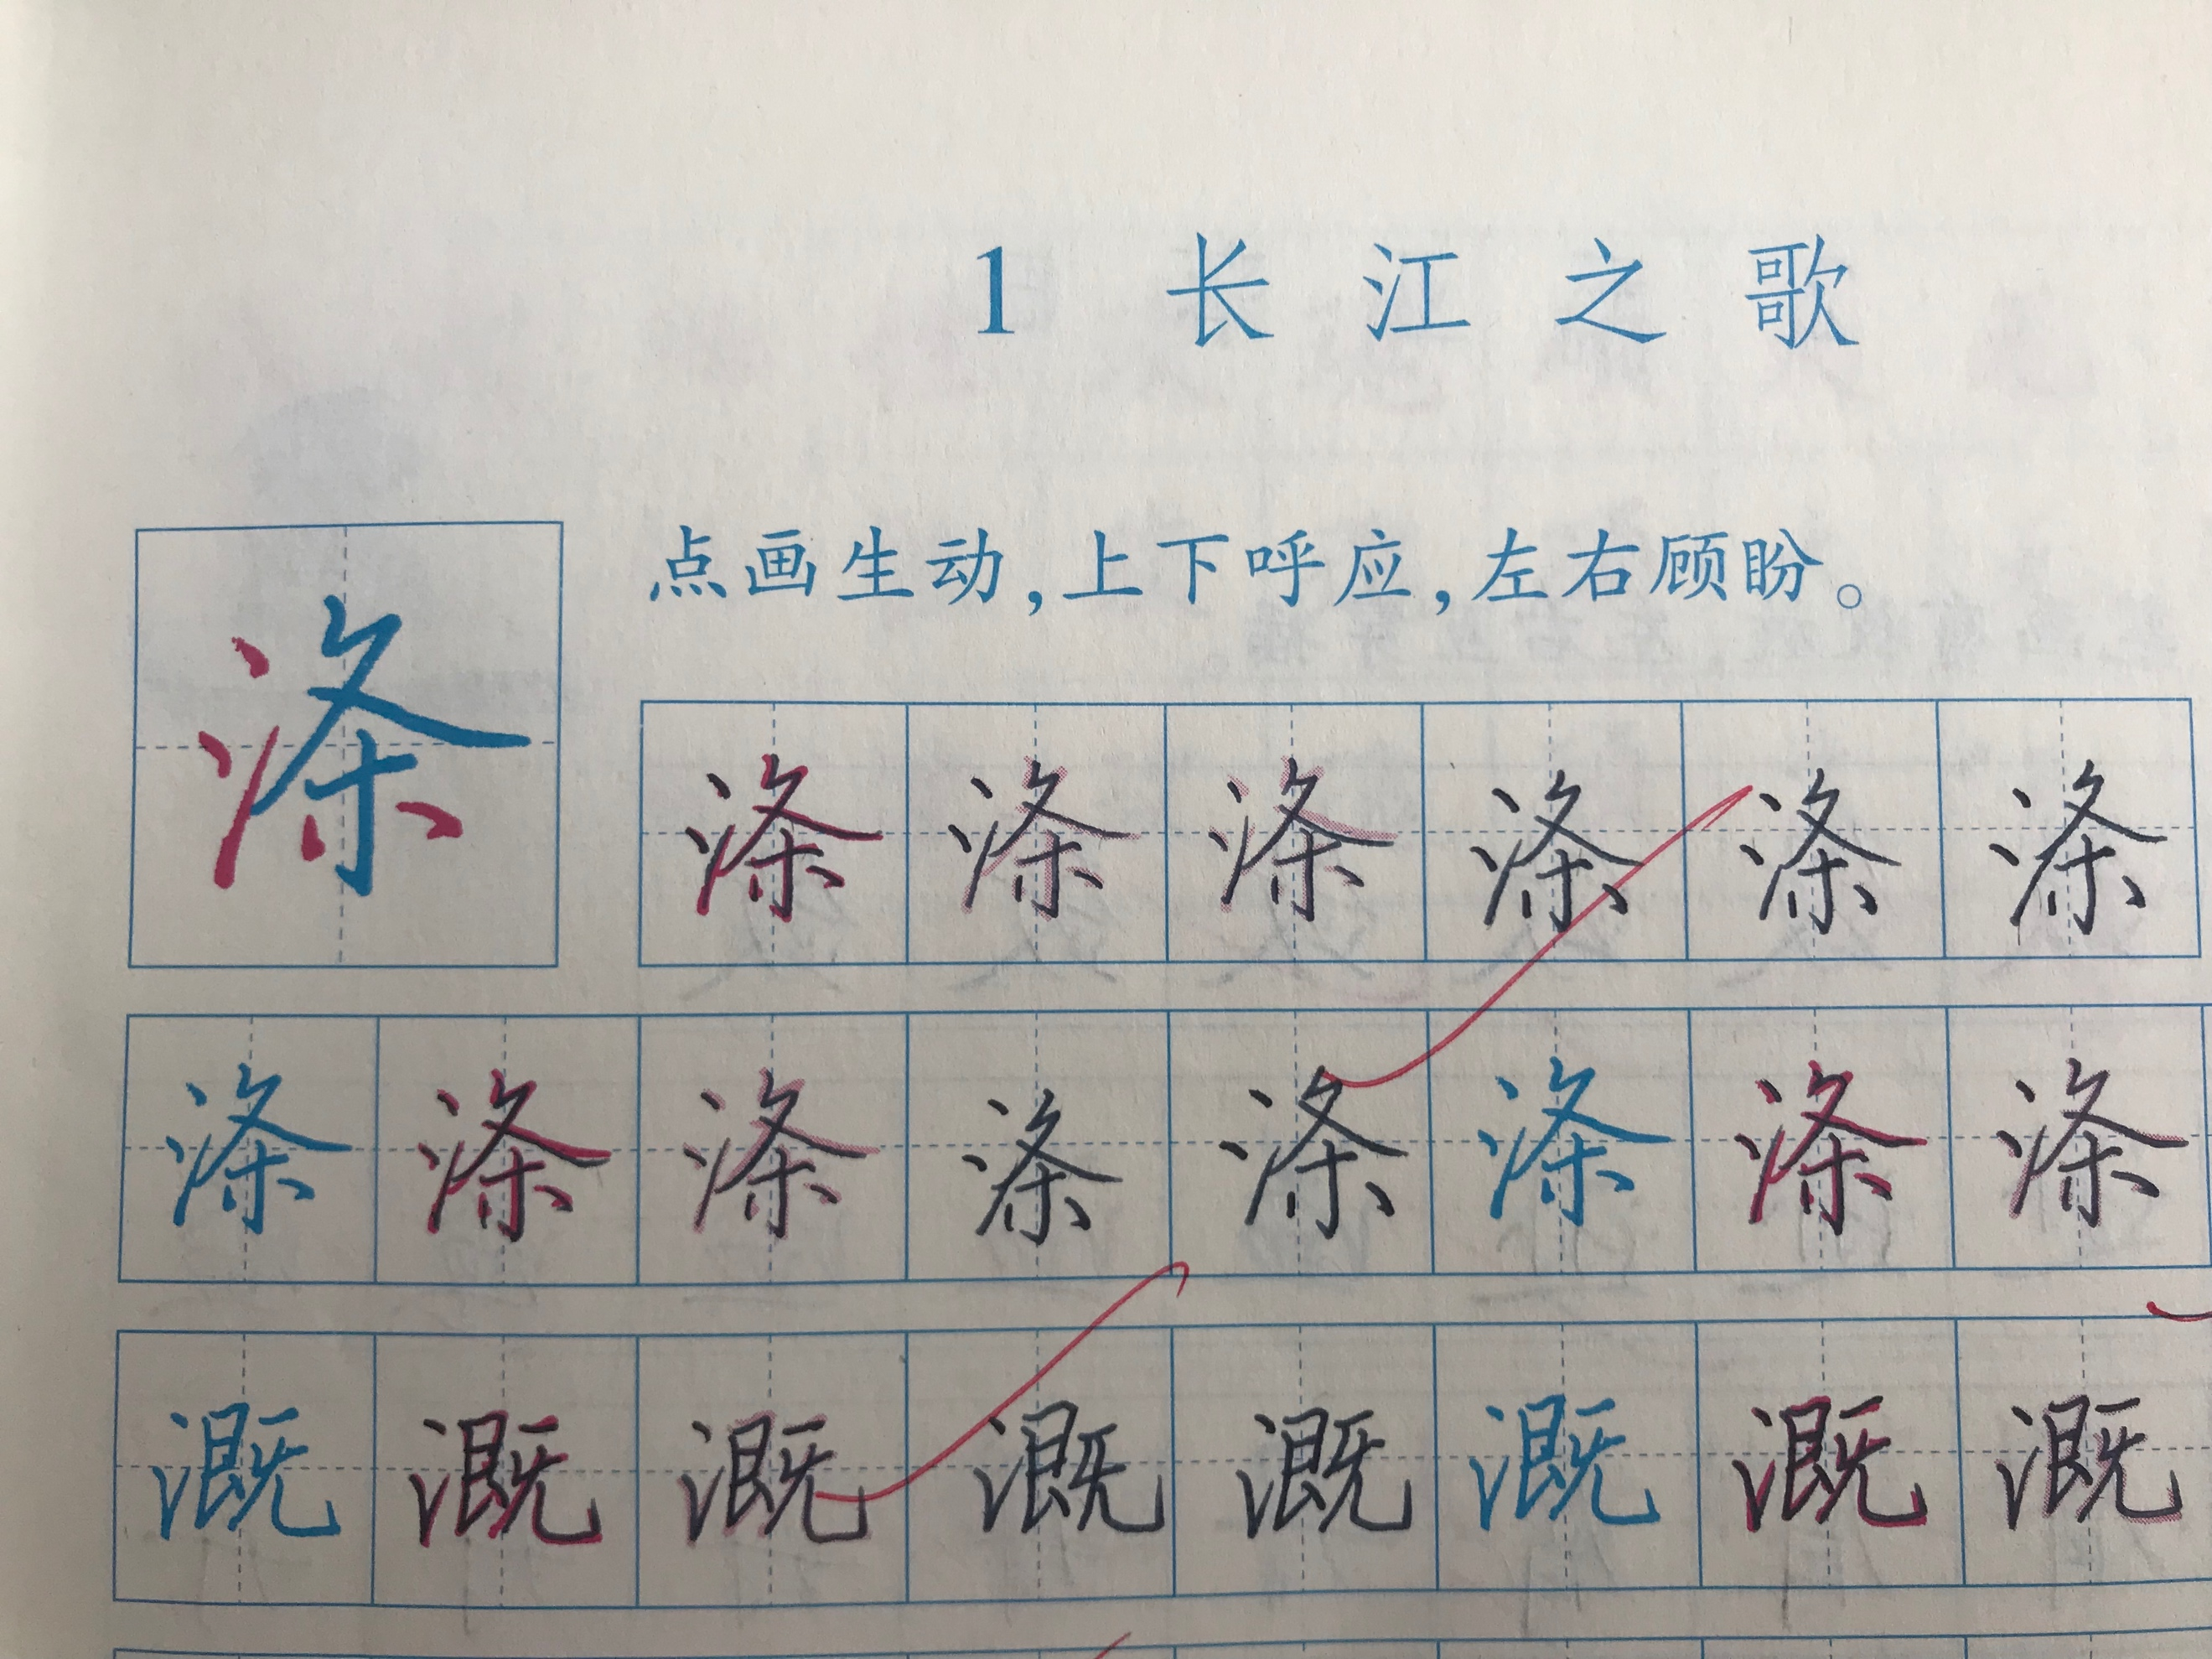 1 长江之歌
点画生动，上下呼应，左右顾盼。
涤
涤 涤 涤 涤 涤 涤
涤 涤 涤 涤 涤 涤 涤 涤
溉 溉 溉 溉 溉 溉 溉 溉